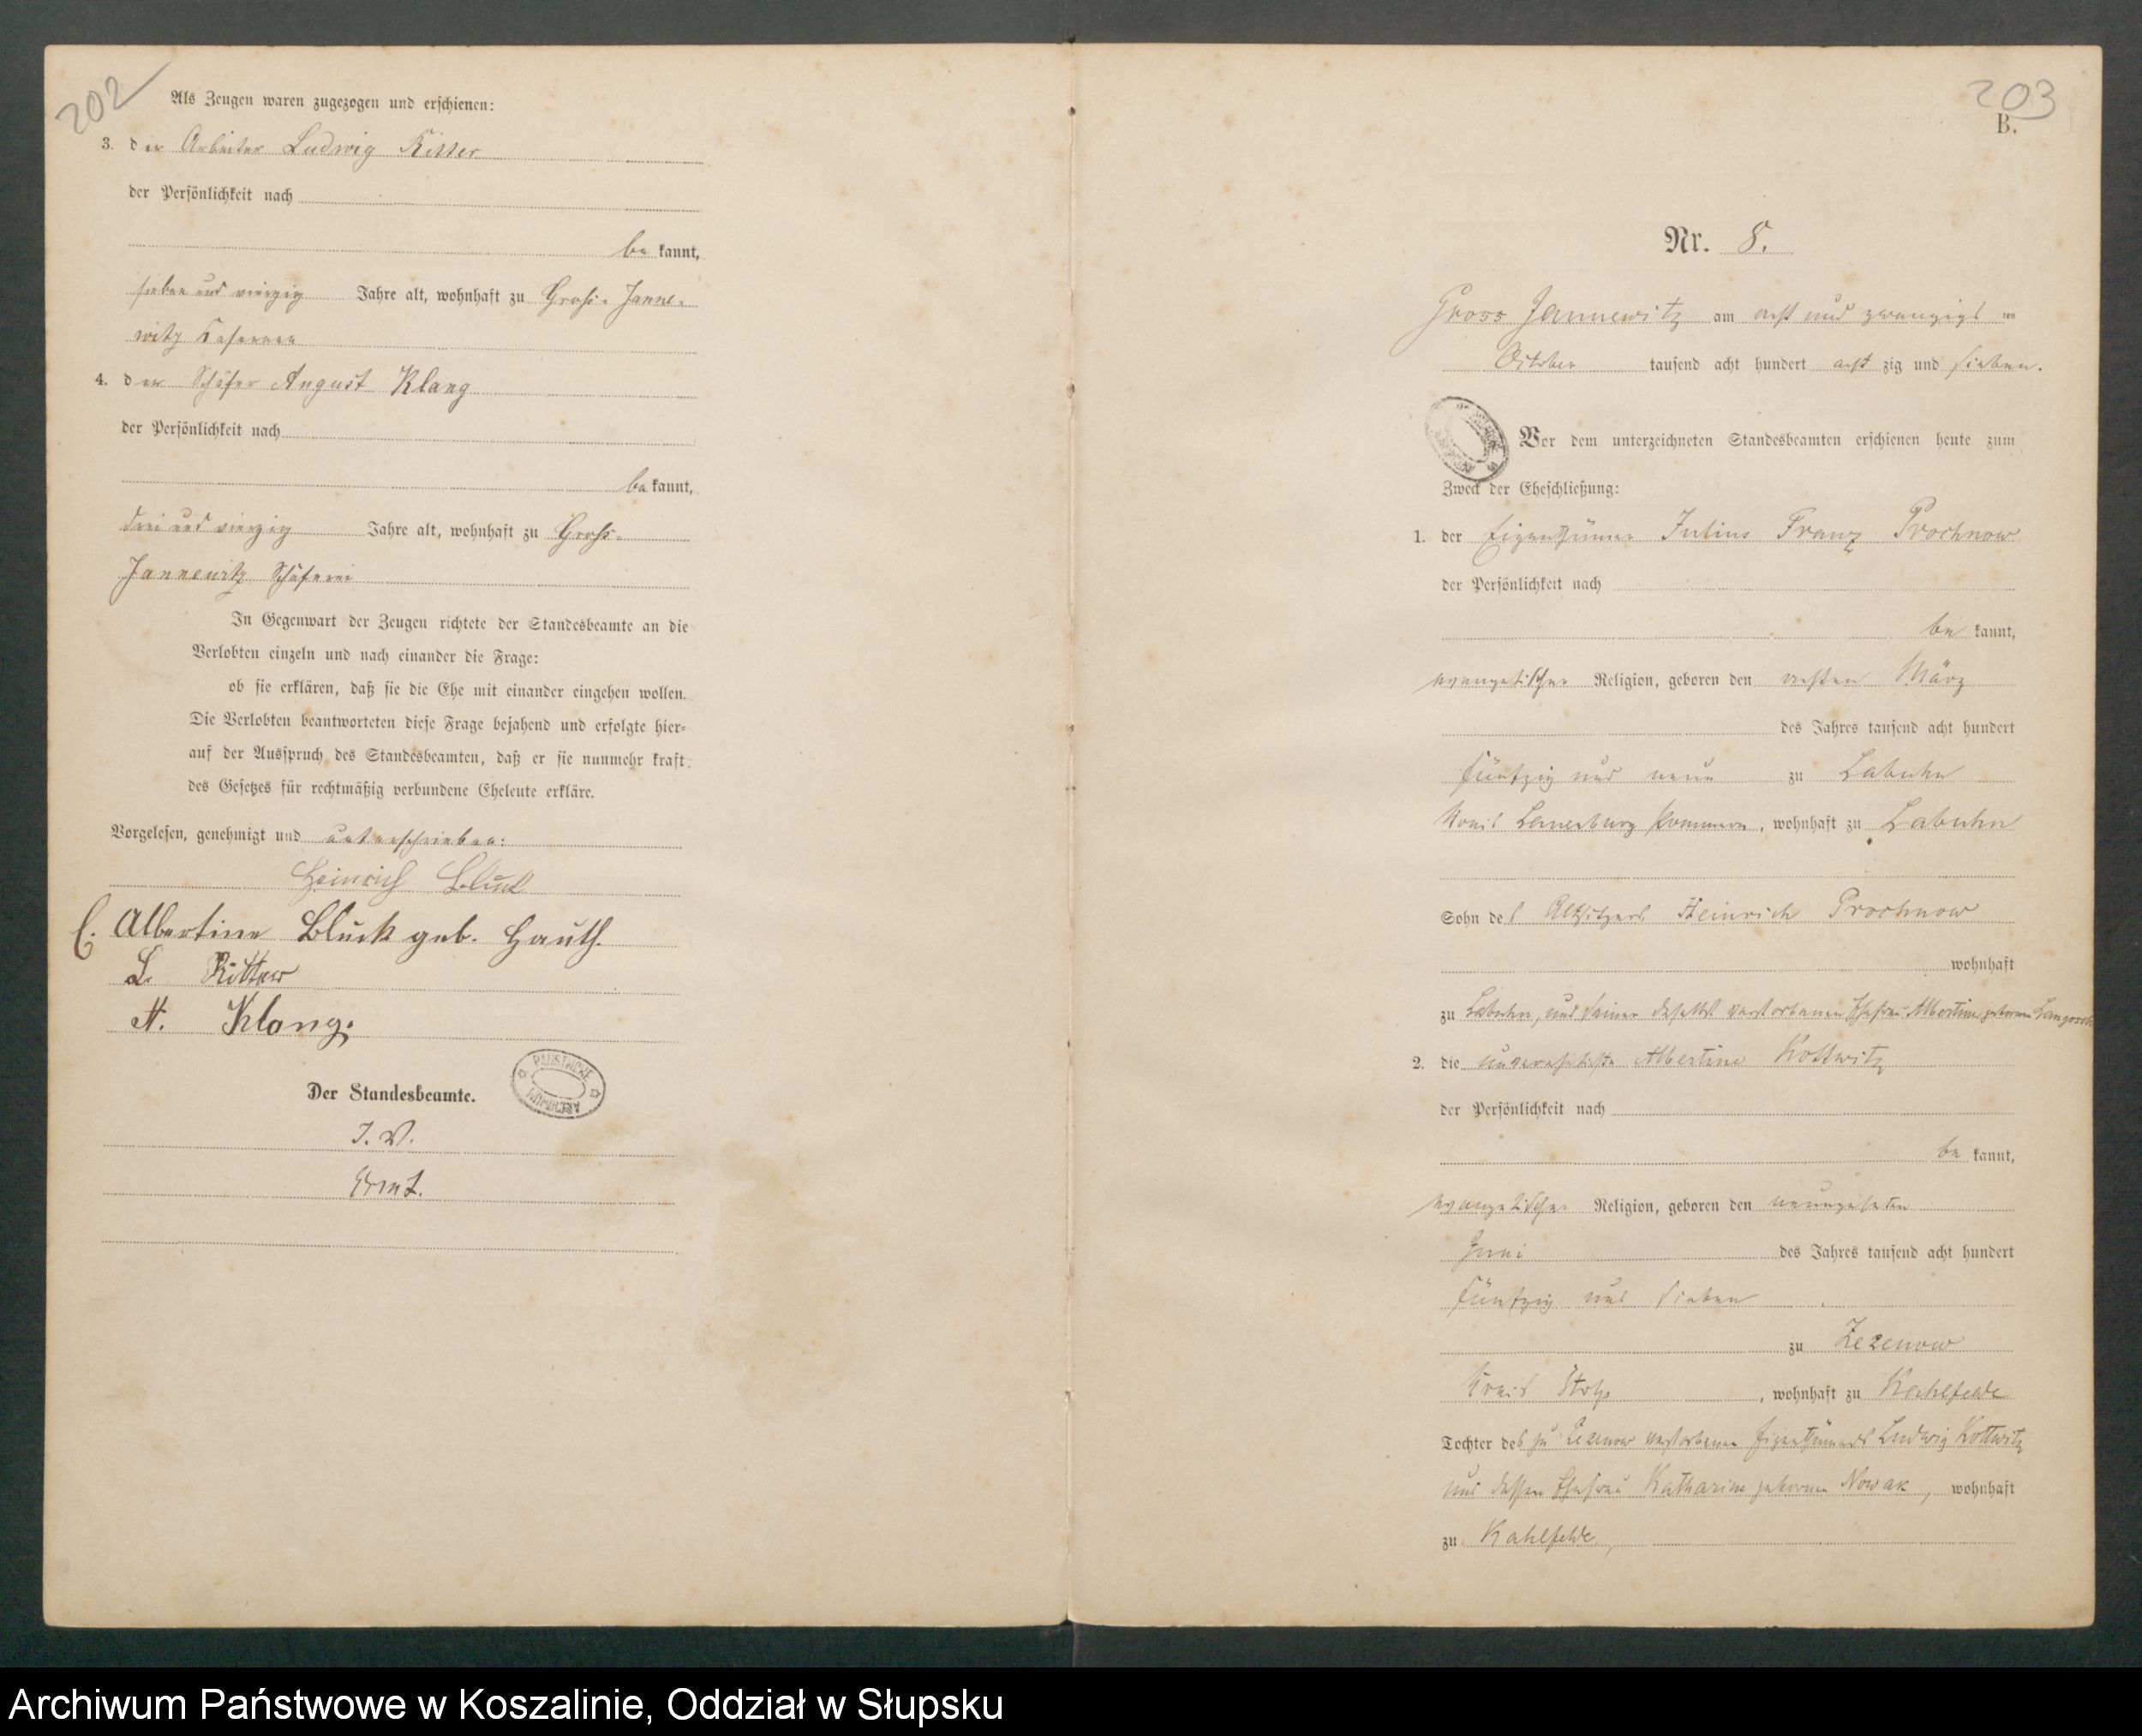 202
Als Zeugen waren zugezogen und erschienen:
3. der Arbeiter Ludwig Ritter
der Persönlichkeit nach
be kannt,
sieben und vierzig Jahre alt, wohnhaft zu Groß-Janne-
witz
4. der Schäfer August Klang
der Persönlichkeit nach
be kannt,
drei und vierzig Jahre alt, wohnhaft zu Groß-
Jannewitz Schäferei
In Gegenwart der Zeugen richtete der Standesbeamte an die
Verlobten einzeln und nach einander die Frage:
ob sie erklären, daß sie die Ehe mit einander eingehen wollen.
Die Verlobten beantworteten diese Frage bejahend und erfolgte hier-
auf der Ausspruch des Standesbeamten, daß er sie nunmehr kraft
des Gesetzes für rechtmäßig verbundene Eheleute erkläre.
Vorgelesen, genehmigt und unterschrieben:
Heinrich Bluck
Albertine Bluck geb. Hauth.
L. Ritter
A. Klang.
PAŃSTWOWE ARCHIWUM
Der Standesbeamte.
I. V.
203
B.
Nr. 8.
Gross Jannewitz am acht und zwanzigsten
October tausend acht hundert acht zig und sieben.
Vor dem unterzeichneten Standesbeamten erschienen heute zum
Zweck der Eheschließung:
1. der Eigenthümer Julius Franz Prochnow
der Persönlichkeit nach
be kannt,
evangelischer Religion, geboren den März
des Jahres tausend acht hundert
fünfzig und neun zu Labuhn
Kreis Lauenburg Pommern, wohnhaft zu Labuhn
Sohn des Altsitzers Heinrich Prochnow
wohnhaft
zu Labuhn, und seiner daselbst verstorbenen Ehefrau Albertine geborene Langosch
2. die unverehelichte Albertine Kottwitz
der Persönlichkeit nach
be kannt,
evangelischer Religion, geboren den neunzehnten
Juni des Jahres tausend acht hundert
fünfzig und sieben
zu Zezenow
Kreis Stolp, wohnhaft zu Kahlfelde
Tochter des zu Zezenow verstorbenen Eigenthümers Ludwig Kottwitz
und dessen Ehefrau Katharine geborene Nowak, wohnhaft
zu Kahlfelde,
Archiwum Państwowe w Koszalinie, Oddział w Słupsku